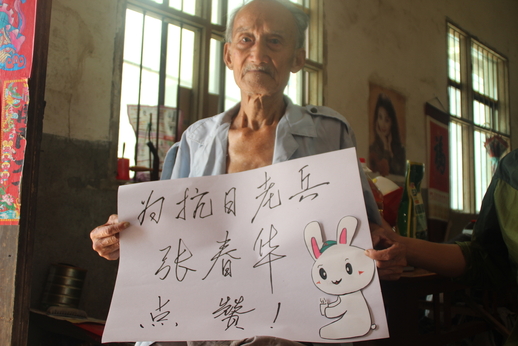 为抗日老兵
张春华
点赞!